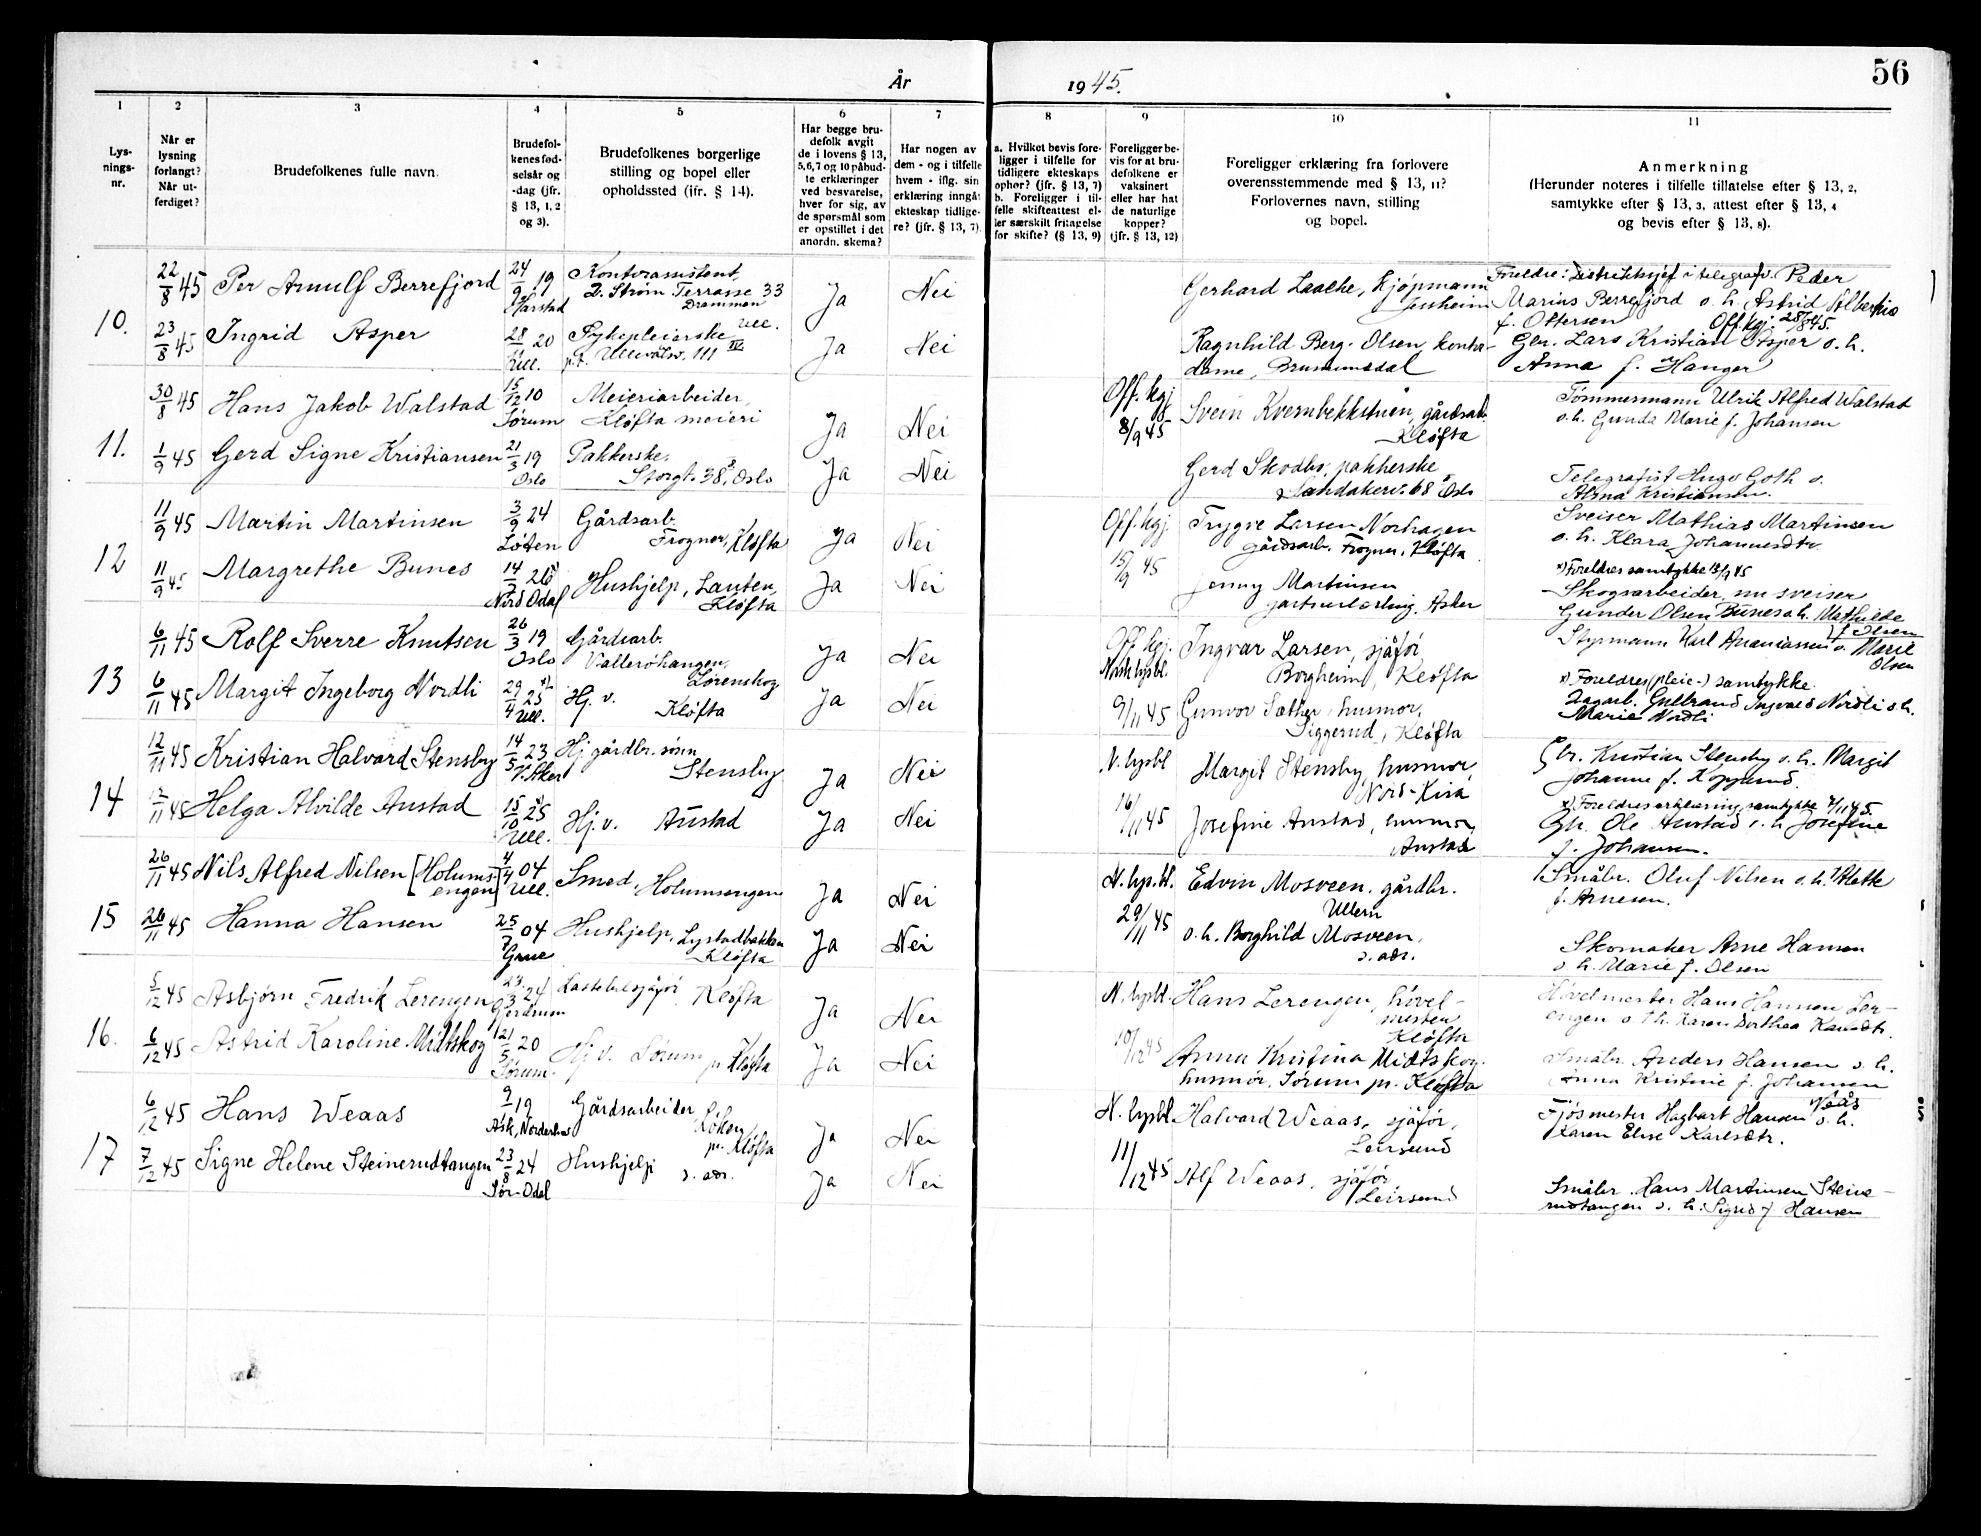 56
År 1945.
1 2 3 4 5 6 7 8 9 10 11
Lys-
nings-
nr.
Når er
lysning
forlangt?
Når ut-
ferdiget?
Brudefolkenes fulle navn.
Brudefol-
kenes fød-
selsår og
-dag (jfr.
§ 13, 1, 2
og 3).
Brudefolkenes borgerlige
stilling og bopel eller
opholdssted (ifr. § 14).
Har begge bru-
defolk avgit
de i lovens § 13,
5,6,7 og 10 påbud-
te erklæringer
ved besvarelse,
hver for sig, av
de spørsmål som
er opstillet i det
anordn. skema?
Har nogen av
dem - og i tilfelle
hvem - iflg. sin
erklæring inngåt
ekteskap tidlige-
re? (jfr. § 13, 7).
a. Hvilket bevis fore-
ligger i tilfelle for
tidligere ekteskaps
ophør? (jfr. § 13, 7)
b. Foreligger i til-
felle skifteattest el-
ler særskilt fritagelse
for skifte? (§ 13, 9)
Foreligger be-
vis for at bru-
defolkene er
vaksinert
eller har hat
de naturlige
kopper?
(jfr. § 13, 12)
Foreligger erklæring fra forlovere
overensstemmende med § 13, 11?
Forlovernes navn, stilling
og bopel.
Anmerkning
(Herunder noteres i tilfelle tillatelse efter § 13, 2,
samtykke efter § 13, 3, attest efter § 13, 4
og bevis efter § 13, 8).
10.
22/8 45 Per Arnulf Berrefjord 24/9 19 Harstad
Kontorassistent,
D. Strøm Terrasse 33
Drammen
Ja Nei
Gerhard Laache, Kjøpmann
Jessheim
Foreldre: Distriktssjef i telegrafv. Peder
Marius Berrefjord o. h. Astrid
f. Ottersen Off. kgj. 28/8 45.
23/8 45 Ingrid Asper 28/ 20 Ull.
Sykepleierske Ull.
p.t. Ullevålsv. 111 IV
Ja Nei
Ragnhild Berg-Olsen, kontor-
dame, Brumunddal
Gbr. Lars Kristian Asper o. h.
Anna f. Hanger
11.
30/8 45 Hans Jakob Walstad 15/12 10 Sørum
Meieriarbeider,
Kløfta meieri
Ja Nei
Off. kgj
8/9 45
Svein Kvernbekkstuen, gårdsarb.
Kløfta
Tømmermann Ulrik Alfred Walstad
o. h. Gunda Marie f. Johansen
1/9 45 Gerd Signe Kristiansen 21/3 19 Oslo
Pakkerske,
Storgt. 38, Oslo
Ja Nei
Gerd Skodbo, pakkerske
Sandakerv. 68 Oslo
Telegrafist Hugo Goth o.
Alma Kristiansen.
12
11/9 45 Martin Martinsen 3/9 24 Løten
Gårdsarb.
Frogner, Kløfta
Ja Nei
Off. kgj.
15/9 45
Trygve Larsen Norhagen
gårdsarb. Frogner, Kløfta
Sveiser Mathias Martinsen
o. h. Klara Johannesdtr
11/9 45 Margrethe Bunes 14/7 26 x) Nord Odal
Hushjelp, Lauten,
Kløfta
Ja Nei
Jenny Martinsen
Asker
x) Foreldres samtykke 13/9 45
Skogsarbeider, nu sveiser
Gunder Olsen Bunes o. h. Mathilde
f. Olsen
13
6/11 45 Rolf Sverre Knutsen 26/3 19 Oslo
Gårdsarb.
Vallerohangen,
Lørenskog
Ja Nei
Off. kgj.
Norsk lysbl.
9/11 45
Ingvar Larsen, sjåfør
Borgheim, Kløfta
Styrmann Karl Ananiassen o. Marie
Olsen
6/11 45 Margit Ingeborg Nordli 29/4 25 x) Ull.
Hj. v. Kløfta
Ja Nei
Gunvor Sæther, husmor,
Siggerud, Kløfta
x) Foreldres (pleie-) samtykke
Sagarb. Gulbrand Ingvald Nordli o. h.
Marie Nordli
14
12/11 45 Kristian Halvard Stensby 14/5 23 V. Aker
Hj. gårdbr. sønn
Stensby
Ja Nei
N. lysbl
16/11 45
Margit Stensby, husmor,
Nord-Kisa
Gbr. Kristian Stensby o. h. Margit
Johanne f. Kopperud.
12/11 45 Helga Alvilde Anstad 15/10 25 x) Ull.
Hj. v. Anstad
Ja Nei
Josefine Anstad, husmor,
Anstad
x) Foreldres erklæring samtykke 7/11 45.
Gbr. Ole Anstad o. h. Josefine
f. Johansen.
15
26/11 45 Nils Alfred Nilsen [Holums-
engen] 4/4 04 Ull.
Smed, Holumsengen
Ja Nei
N. lys. bl.
29/11 45
Edvin Mosveen, gårdbr.
Ullern
Småbr. Oluf Nilsen o. h.
f. Arnesen.
26/11 45 Hanna Hansen 25/7 04 Grue
Hushjelp, Lystadbakken
Kløfta
Ja Nei
o. h. Borghild Mosveen,
s. adr.
Skomaker Arne Hansen
o h. Marie f. Olsen
16.
5/12 45 Asbjørn Fredrik Lerengen 23/3 24 Gjerdrum
Lastebilsjåfør Kløfta
Ja Nei
N. lysbl.
10/12 45
Hans Lerengen, høvel-
mester
Kløfta
Høvelmester Hans Hansen Ler-
engen o. h. Karen Dorthea
6/12 45 Astrid Karoline Midtskog 21/5 20 Sørum
Hj. v. Sørum pr Kløfta
Ja Nei
Anna Kristina Midtskog.
husmor, Sørum pr. Kløfta
Småbr. Anders Hansen o. h.
Anna Kristine f. Johansen
17
6/12 45 Hans Weaas 9/ 19 Ask, Norderhov
Gårdsarbeider
Løken,
pr. Kløfta
Ja Nei
N. lysbl.
11/12 45
Halvard Weaas, sjåfør,
Leirsund
Fjøsmester Hagbart Hansen Veås o. h.
Karen Elise Karlsdtr.
7/12 45 Signe Helene Steinerudtangen 23/8 24 Sør-Odal
Hushjelp s. adr.
Ja Nei
Alf Weaas, sjåfør,
Leirsund
Småbr. Hans Martinsen Steine-
rudtangen o. h. Sigrid f Hansen